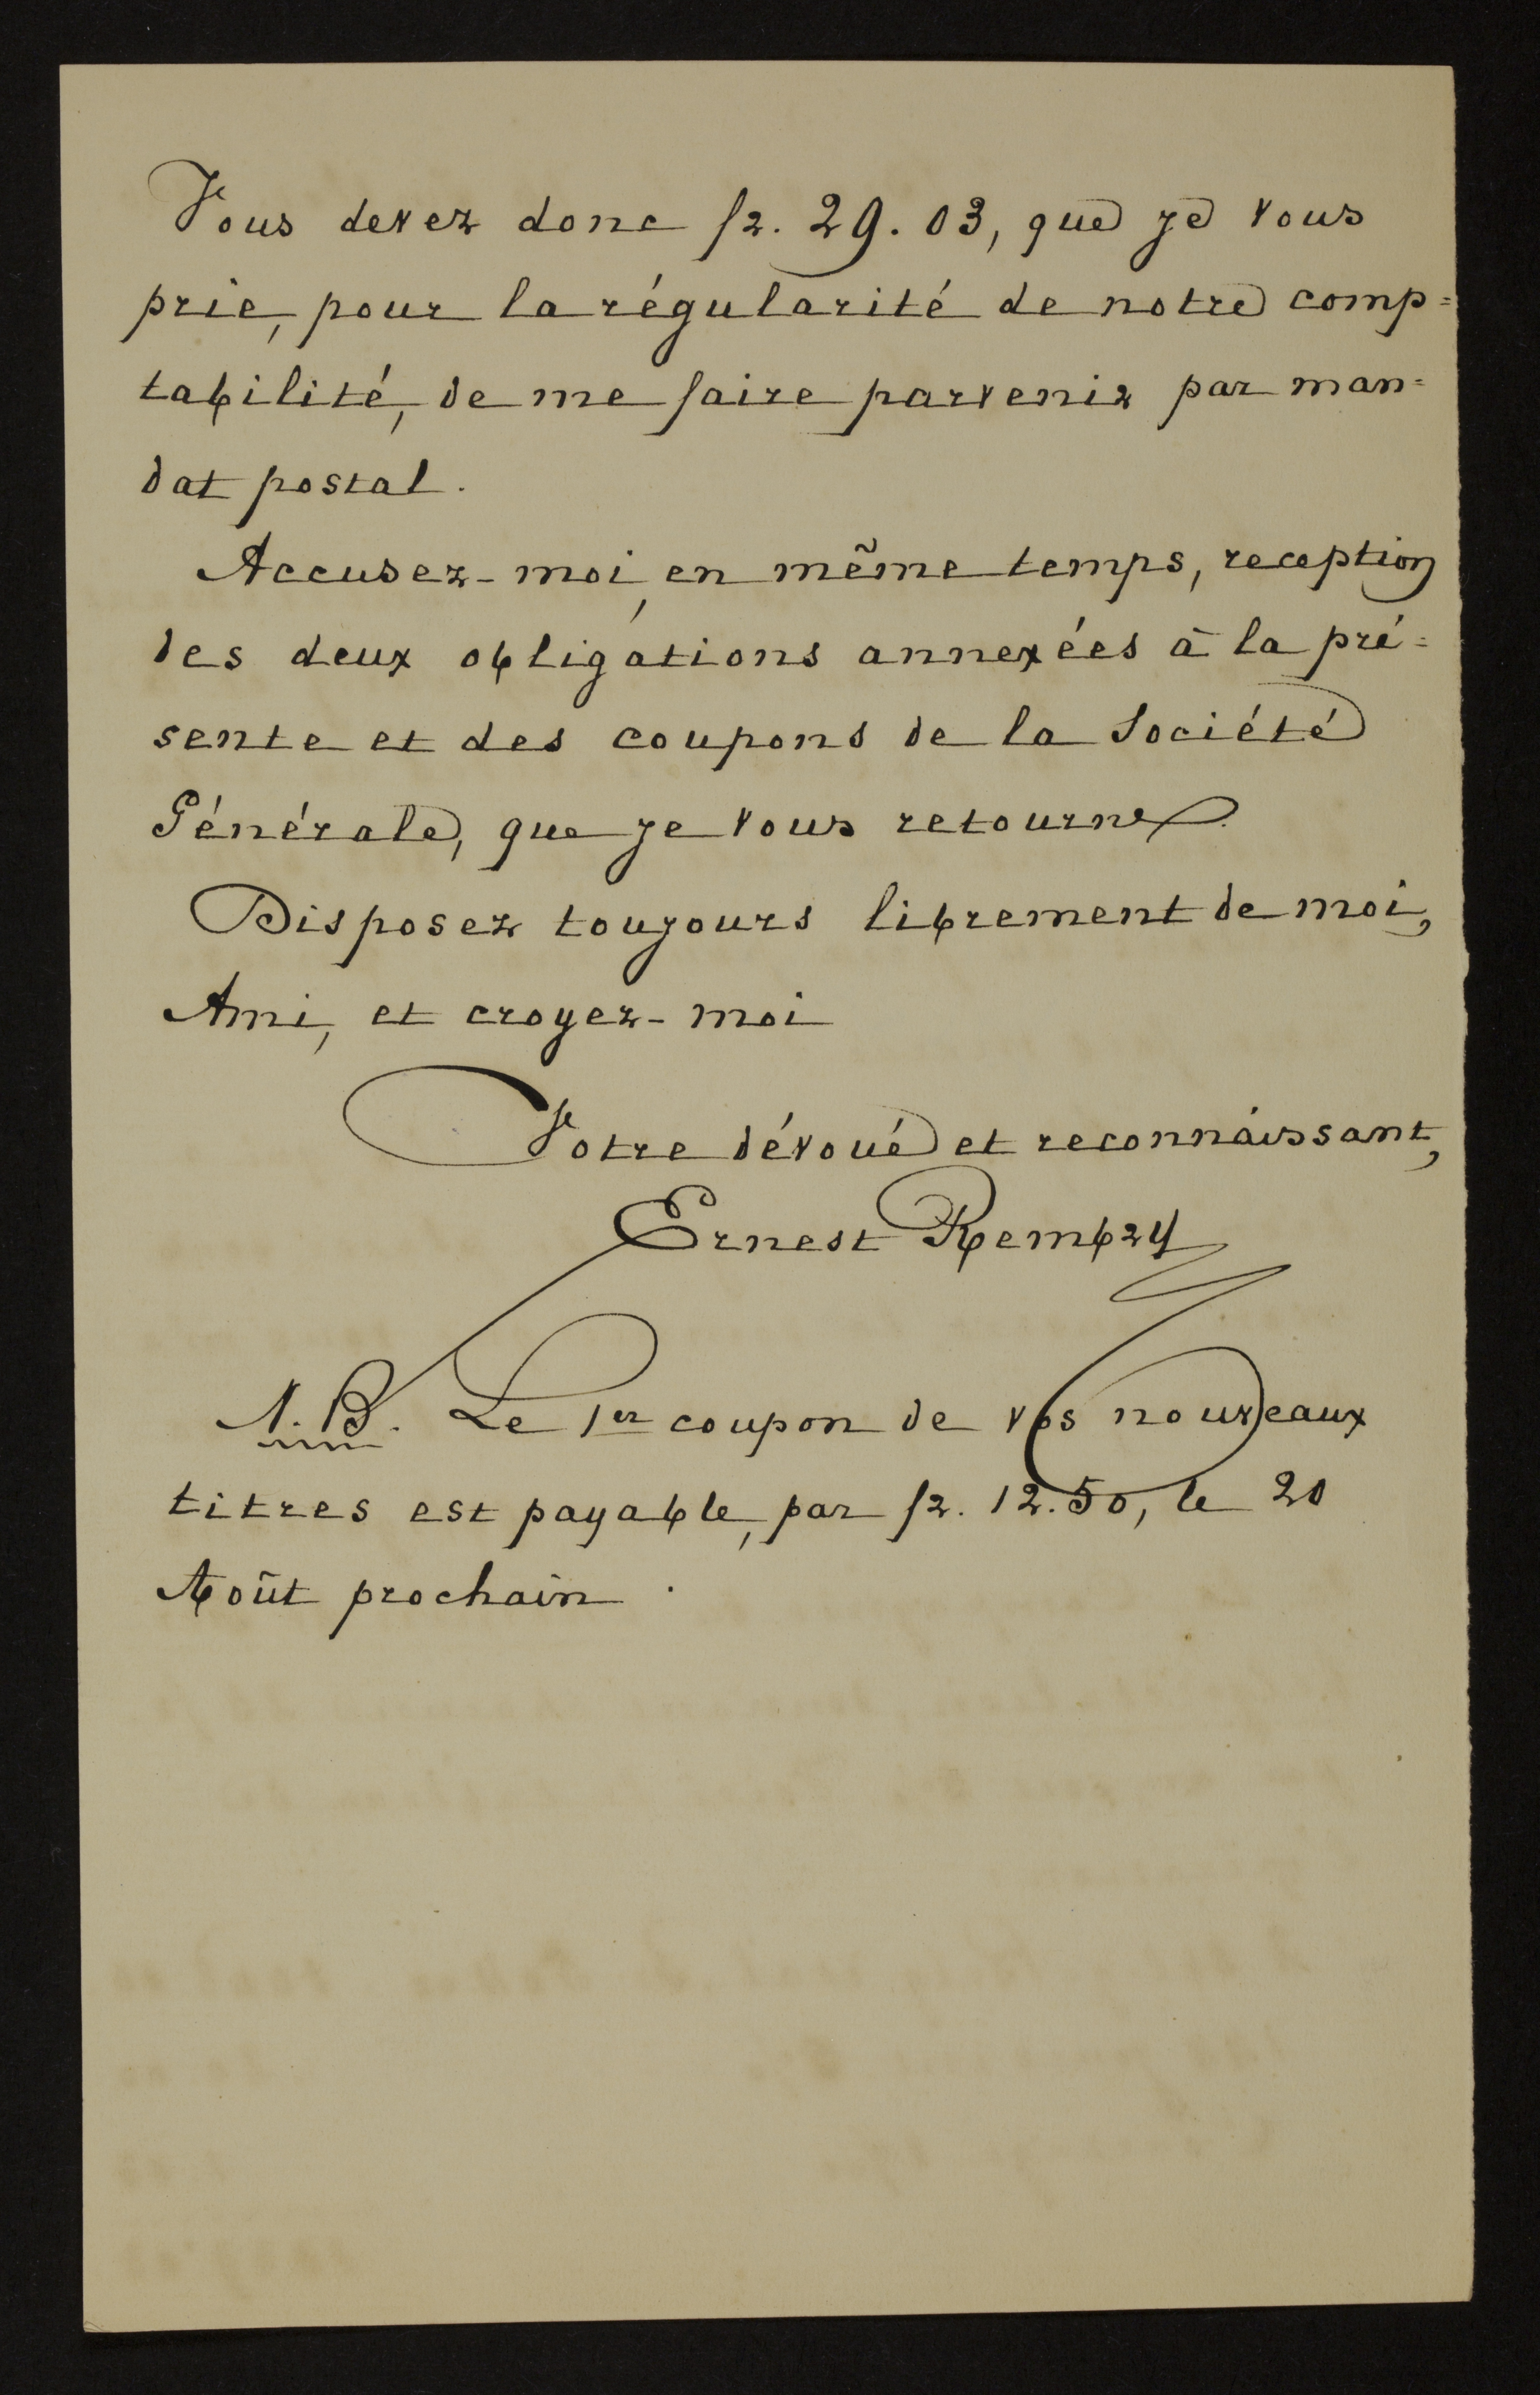 Vous devez donc fr. 29.03, que je vous
prie, pour la régularité de notre comp=
tabilité, de me faire parvenir par man=
dat postal.
Accusez-moi, en même temps, reception
des deux obligations annexées à la pré=
sente et des coupons de la Société
Générale, que je vous retourne.
Disposez toujours librement de moi,
Ami, et croyez-moi
Votre dévoué et reconnaissant,
Ernest Rembry
N.B. Le 1er coupon de vos nouveaux
titres est payable, par fr. 12.50, le 20
Août prochain.